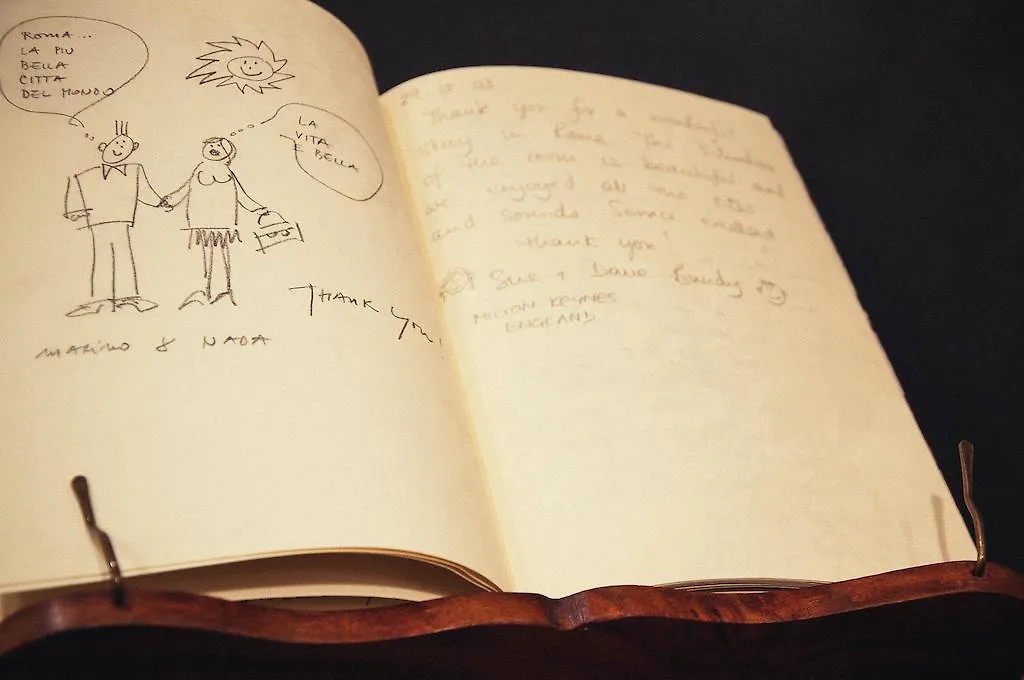 ROMA...
LA PIU
BELLA
CITTA
DEL MONDO
LA
VITA
È BELLA
THANK YOU!
MARINO & NADA
Thank you for a wonderful
stay in Rome. The situation
of the room is beautiful and
we enjoyed all the
and sounds. Service excellent
Thank you!
Sue + Dave Bundy
MILTON KEYNES
ENGLAND.